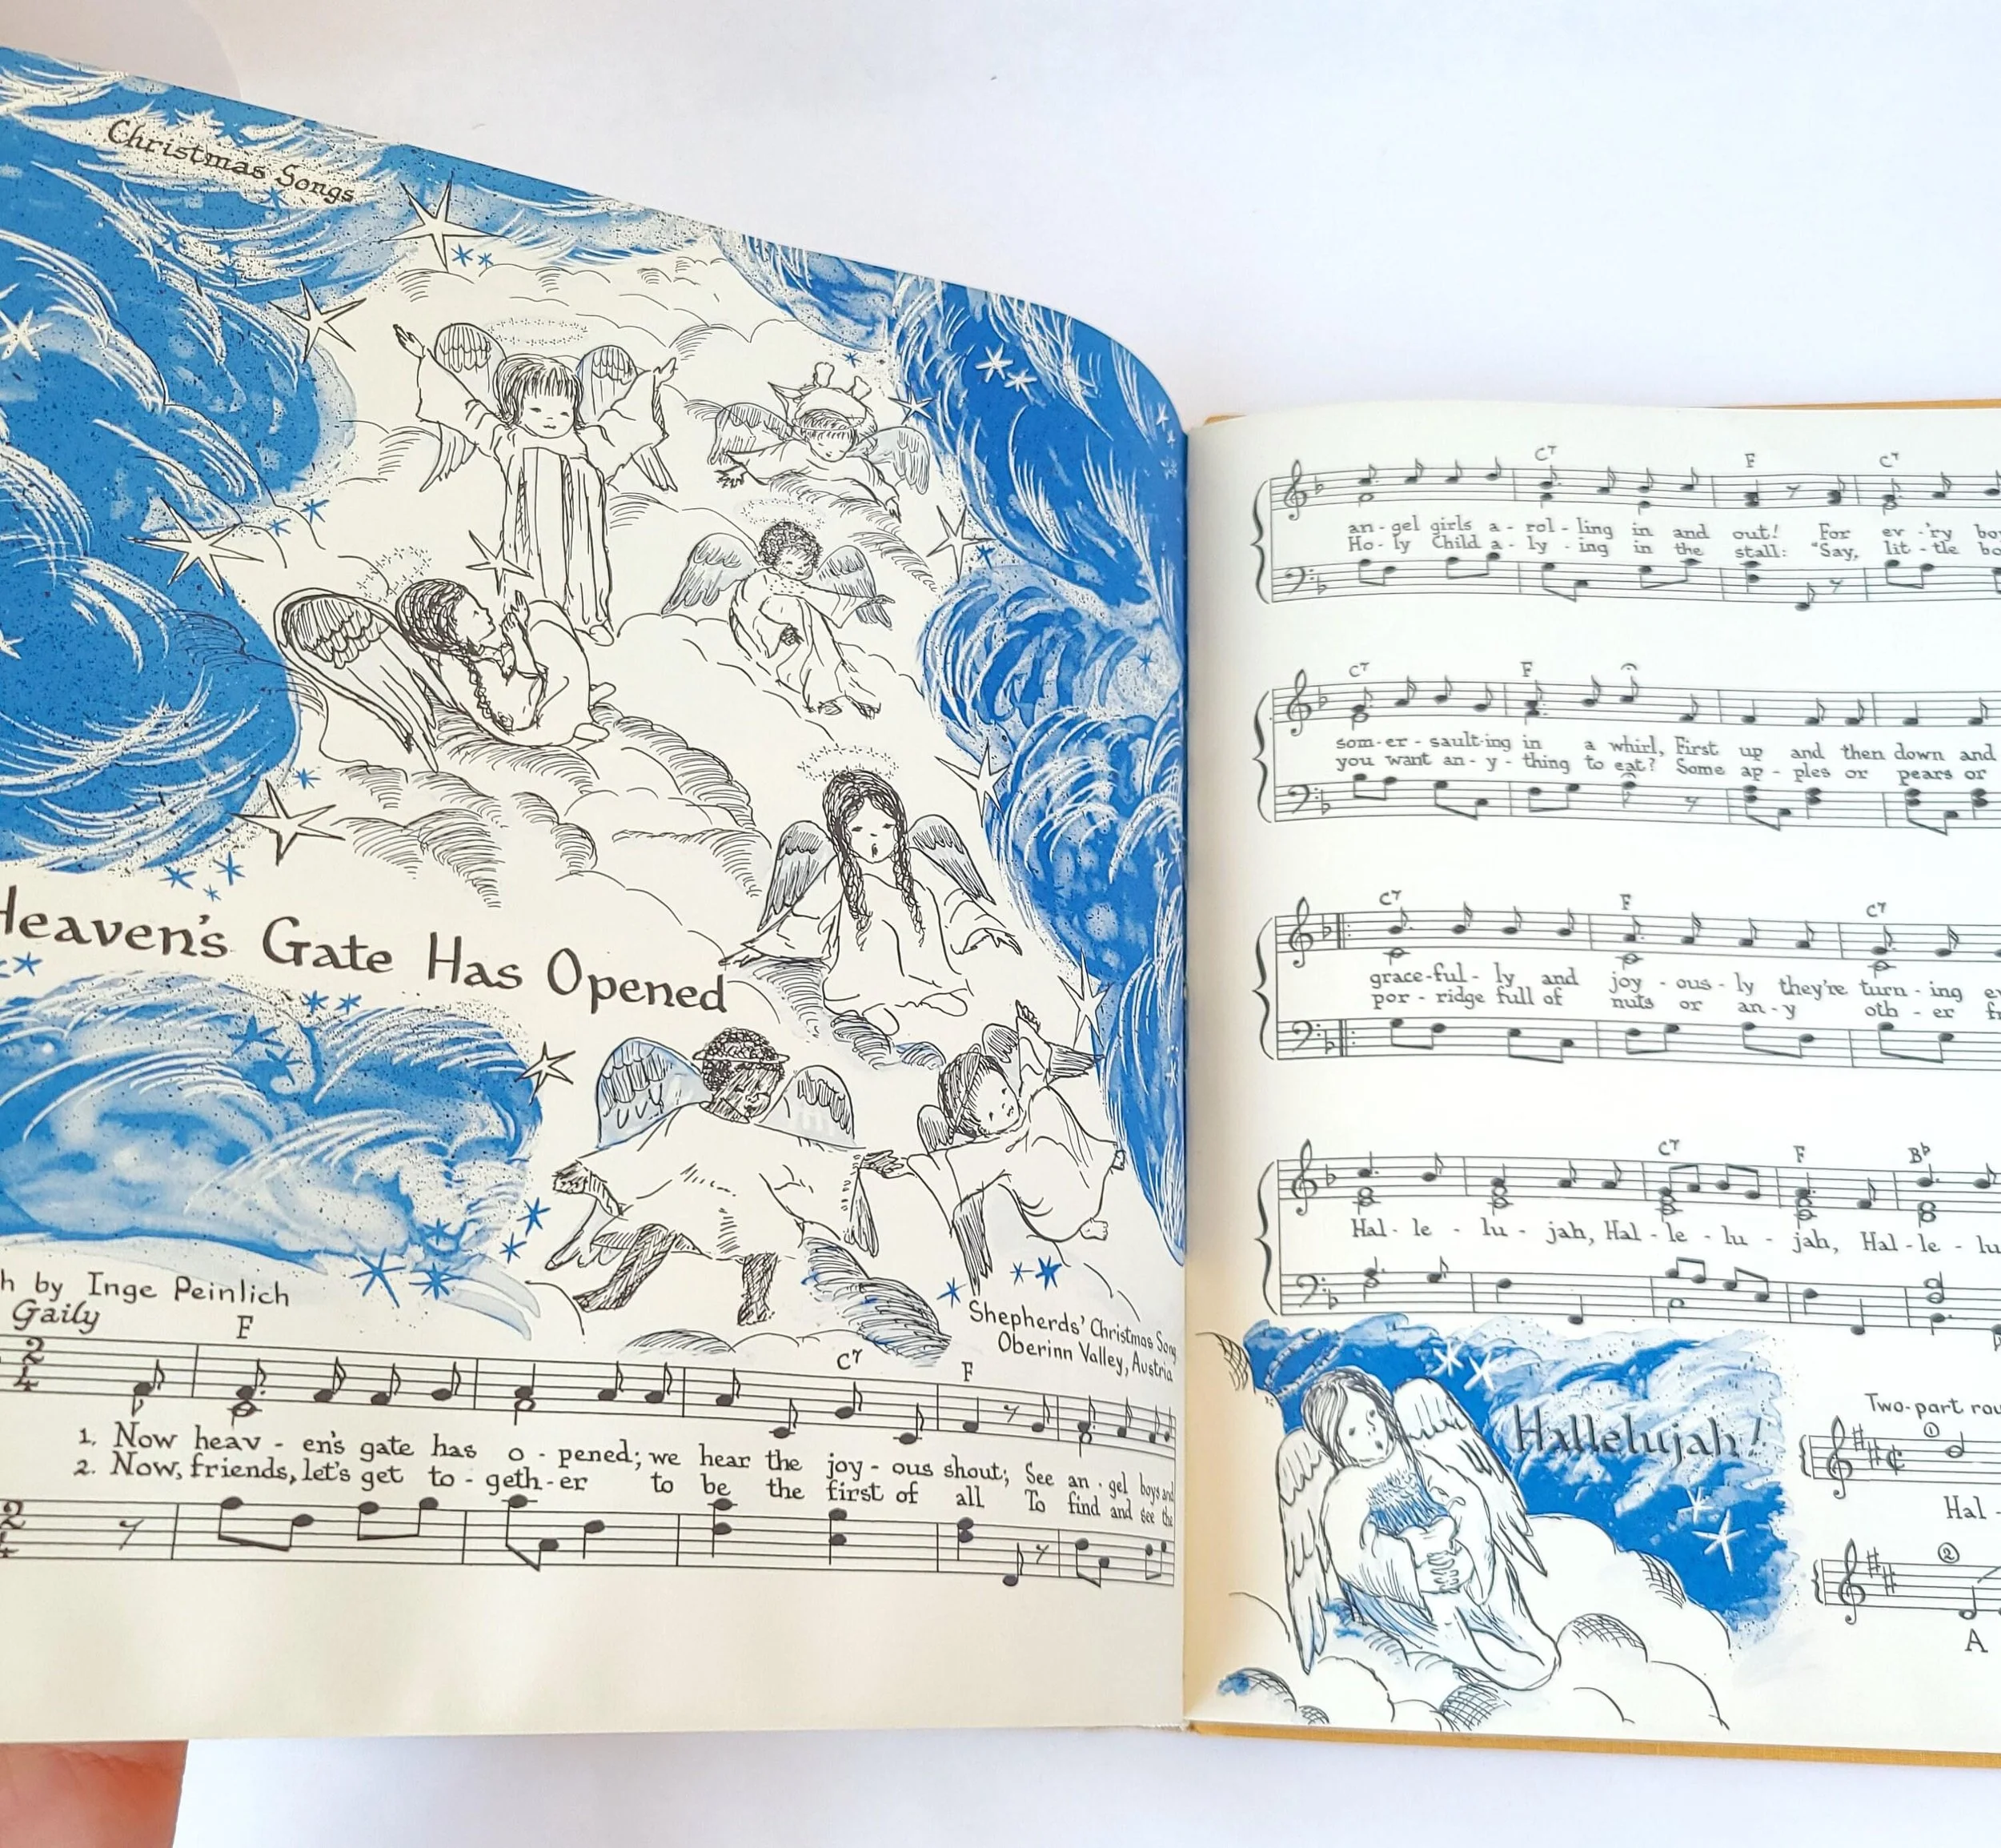 Christmas Songs
Heaven's Gate Has Opened
by Inge Peinlich
Gaily
Shepherds' Christmas Song
Oberinn Valley, Austria
F C7 F
1. Now heav - en's gate has o - pened; we hear the joy - ous shout; See an - gel boys and
2. Now, friends, let's get to - geth - er to be the first of all To find and see the
C7 F C7
an - gel girls a - rol - ling in and out! For ev - 'ry
Ho - ly Child a - ly - ing in the stall: "Say, lit - tle
C7 F
som - er - sault - ing in a whirl, First up and then down and
you want an - y - thing to eat? Some ap - ples or pears or
C7 F C7
grace - ful - ly and joy - ous - ly they're turn - ing
por - ridge full of nuts or an - y oth - er
C7 F Bb
Hal - le - lu - jah, Hal - le - lu - jah, Hal - le - lu
Hallelujah!
Two-part
1
Hal -
2
A